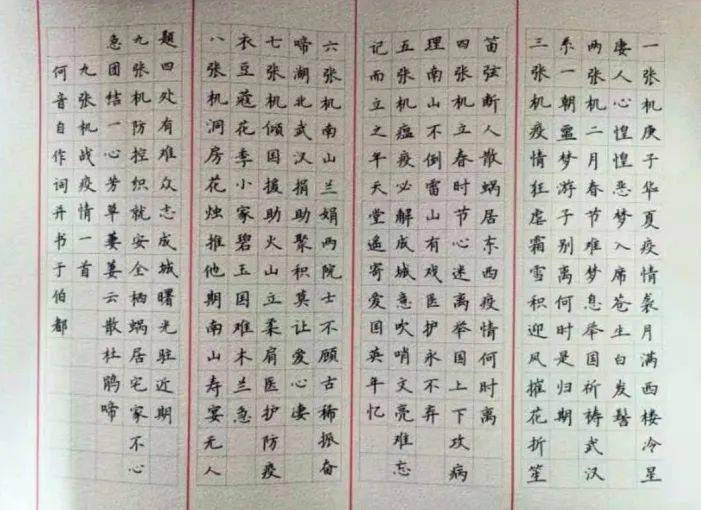 一张机庚子华夏疫情袭月满西楼冷星
凄人心惶惶恶梦入席苍生白发髻
两张机二月春节难梦息举国祈祷武汉
系一朝噩梦游子别离何时是归期
三张机疫情狂虐霜雪积迎风摧花折笙
笛弦断人散蜗居东西疫情何时离
四张机立春时节心迷离举国上下攻病
理南山不倒雷山有戏医护永不弃
五张机瘟疫必解成城急吹哨文亮难忘
记而立之年天堂遥寄爱国英年忆
六张机南山兰娟两院士不顾古稀振奋
啼湖北武汉捐助聚积莫让爱心凄
七张机倾国援助火山立柔肩医护防疫
衣豆蔻花季小家碧玉国难木兰急
八张机洞房花烛推他期南山寿宴无人
题四处有难众志成城曙光驻近期
九张机防控织就安全栖蜗居宅家不心
急团结一心芳草萋萋云散杜鹃啼
九张机战疫情一首
何音自作词并书于伯都